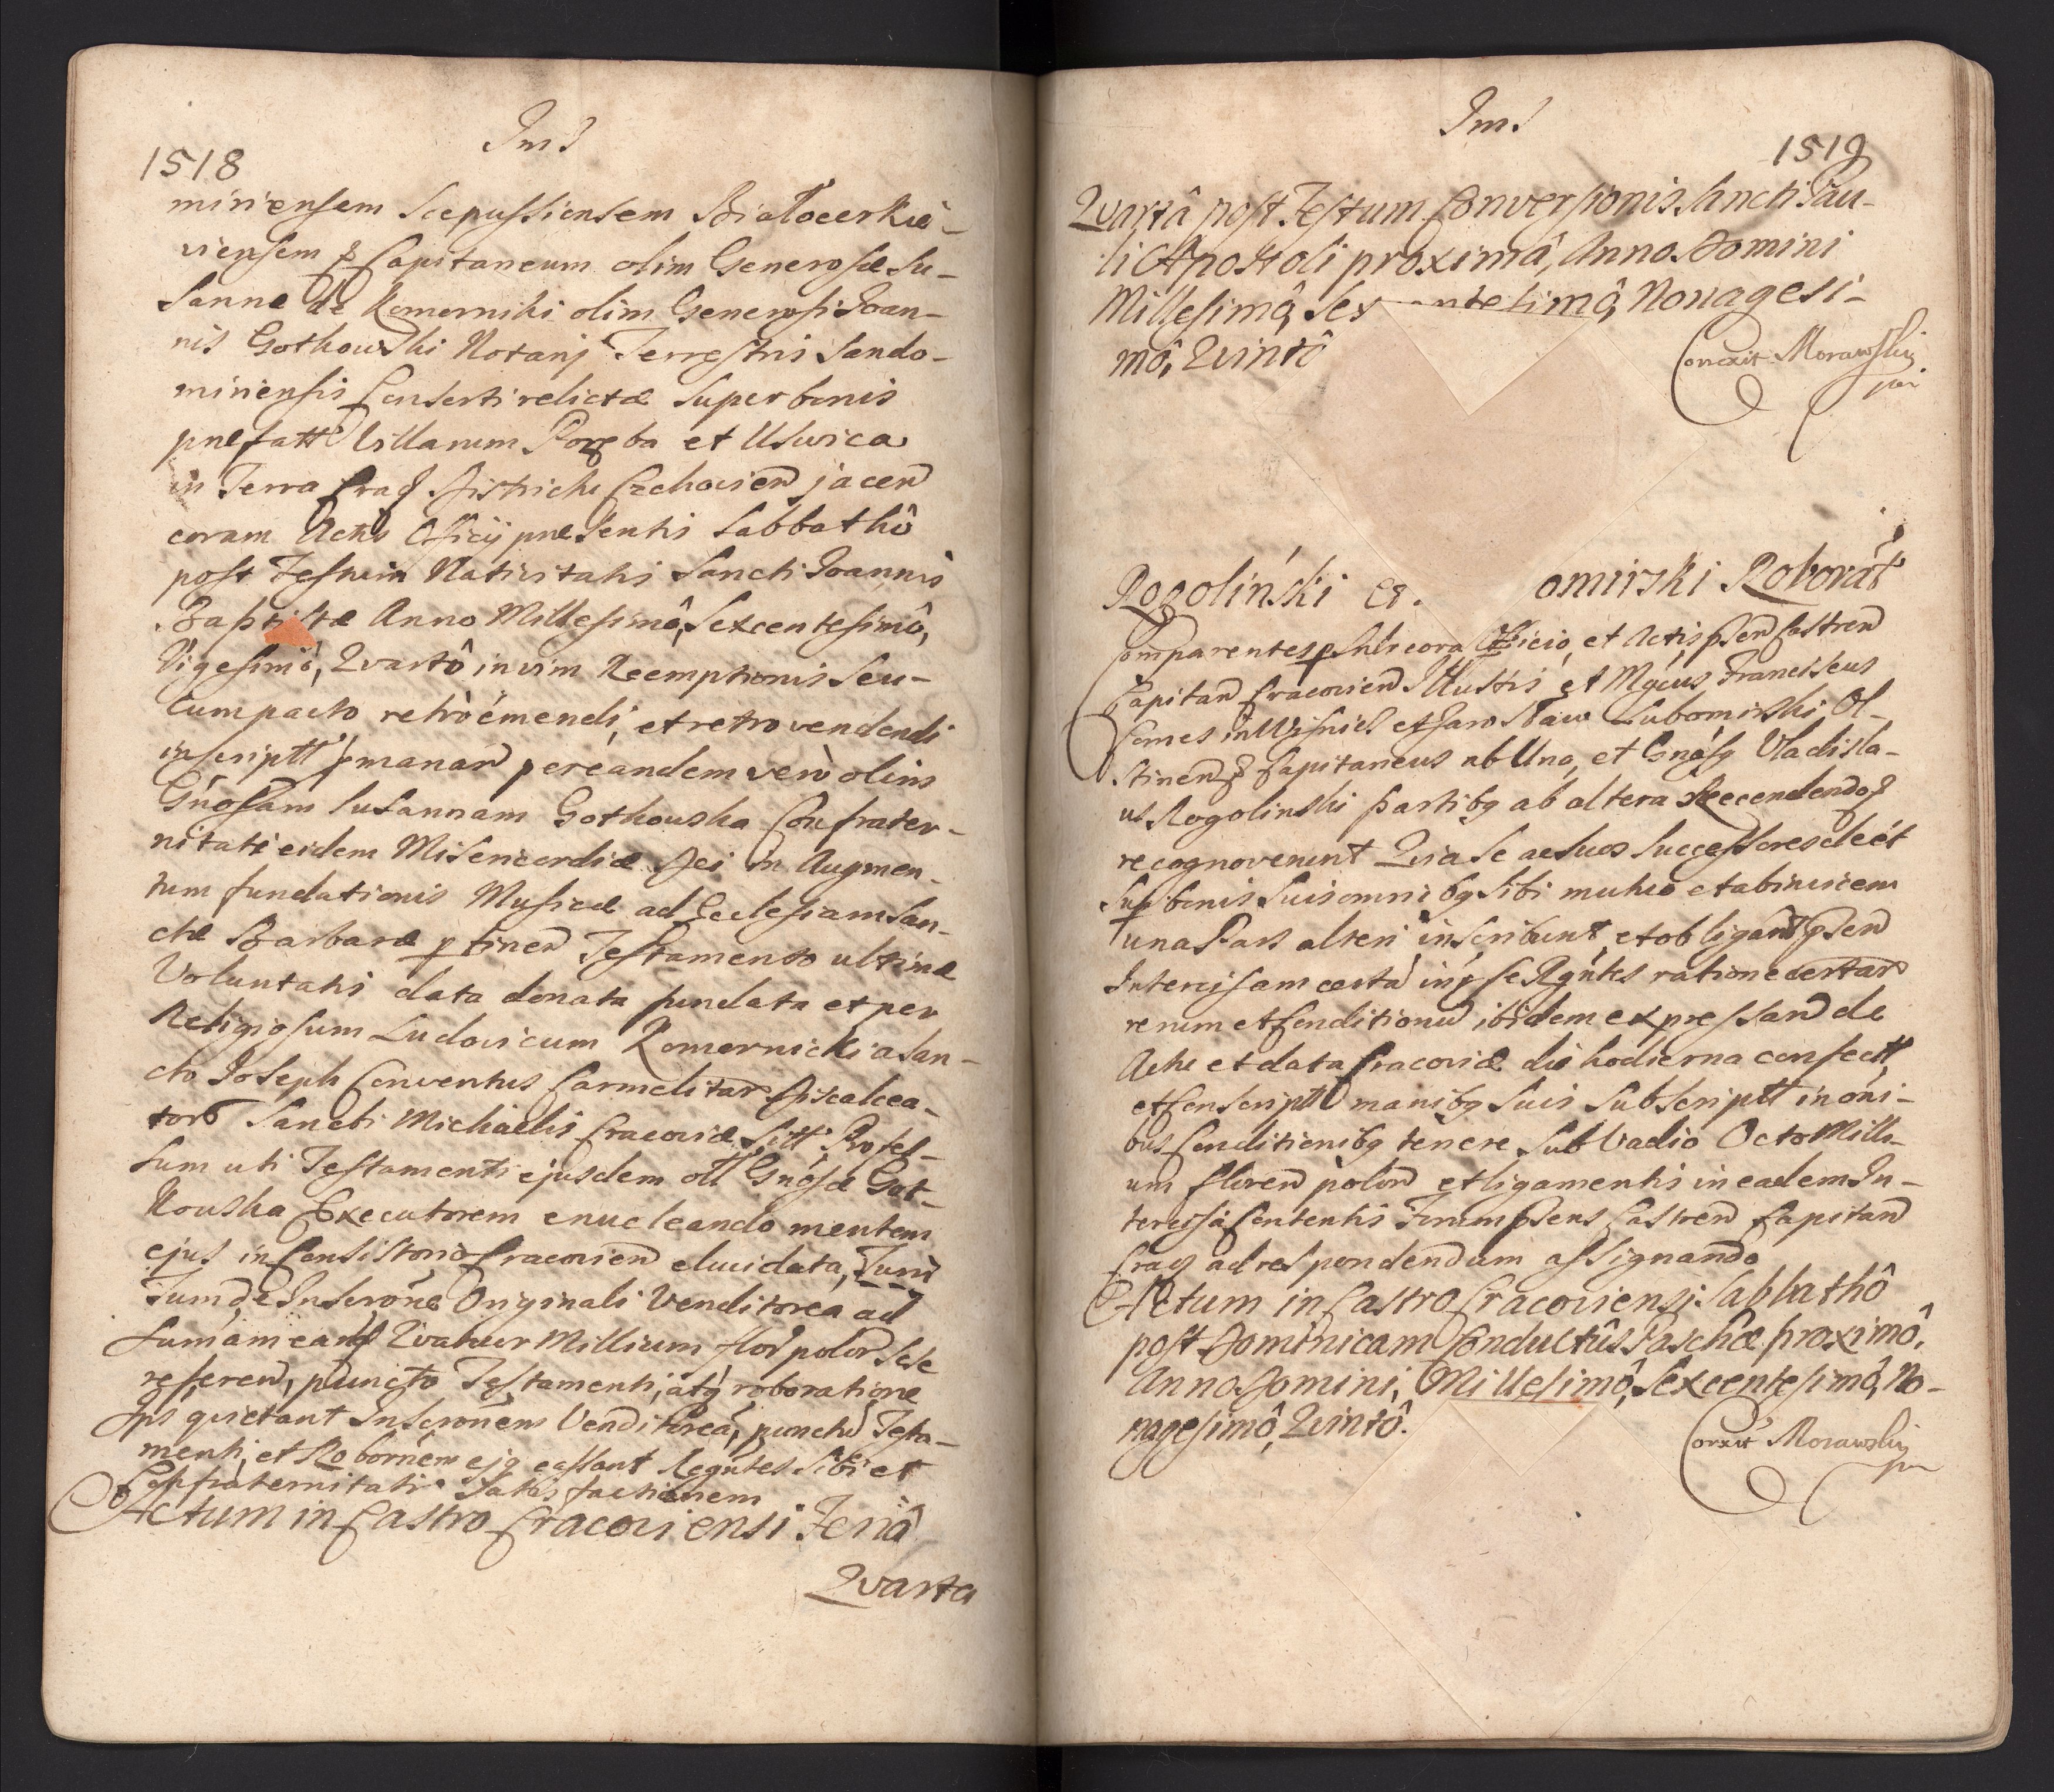 Ims
1518
miriensem Scepussiensem Białocerkie-
viensem Capitaneum olim Generosæ Su-
sannæ de Komorniki olim Generosi Joan-
nis Gothowski Notarij Terrestris Sando-
miriensis Consorti relictæ super bonis
præfatt Villarum Poręba et Uswica
in Terra Crac Districtu Czchovien jacen
coram Actis Officij præsentis Sabbathô
post Festum Nativitatis Sancti Joannis
Baptistæ Anno Millesimô, Sexcentesimô,
Vigesimô, Qvartô in vim Reemptionis seu
cum pacto retrò emendi, et retro vendendi
inscriptt manan per eandem verò olim
Gnosam Susannam Gothouska Confrater-
nitati eidem Misericordiæ Dei in Augmen-
tum fundationis Musicæ ad Ecclesiam San-
ctæ Barbaræ ptinen Testamento ultimæ
Voluntatis data donata fundata et per
Religiosum Ludovicum Komornicki a San-
cto Joseph Conventus Carmelitar Discalcea-
tor Sancti Michaelis Cracoviæ sitti Profes-
sum uti Testamenti ejusdem oll Gnosæ Got-
kouska Executorem enucleando mentem
ejus in Consistorio Cracovien elucidata,
Tum de Inscrone Originali Venditorea ad
sumam eand Qvatuor Millium flor polor sese
referen, puncto Testamenti, atq roboratione
Ips quietant Inscronem Venditorea, punctu Testa-
menti, et Robornem ejq cassant Regntes sibi et
Confraternitati Satisfactionem
Actum in Castro Cracoviensi Feriâ
Qvarta
Ims
1519
Qvartâ post Festum Conversionis Sancti Pau-
li Apostoli proximâ, Anno Domini
Millesimô, Sex entesimô, Nonagesi-
mô, Qvintô
Correxit Morawski
Rogoliński omirski Roborat
Comparentes psnlr cora Officio, et Actis psen Castren
Capitan Cracovien Illustris et Mgcus Franciscus
Comes in Wisnicz et Jarosław Lubomirski Ol-
stinen Capitaneus ab Una, et Gnosq Vladisla-
us Rogolinski partibq ab altera Recedendoq
recognoverunt Qvia se ac suos Successores de et
sup bonis suis omnibq sibi mutuo et ab invicem
una Pars alteri inscribunt, et obligant psen
Intercisam certa inp se Rgntes ratione certar
rerum et Conditionu ibidem expressan de
Actu et data Cracoviæ die hodierna confectt
et Conscriptt manibq suis subscriptt in oni-
bus Conditionibq tenere sub Vadio Octo Milli-
um floren polon et ligamentis in eadem In-
tercisa Contentis Forum psens Castren Capitan
Crac ad respondendum assignando
Actum in Castro Cracoviensi Sabbathô
post Dominicam Conductûs Paschæ proximô,
Anno Domini, Millesimô, Sexcentesimô, No-
nagesimô, Qvintô.
Correxit Morawski